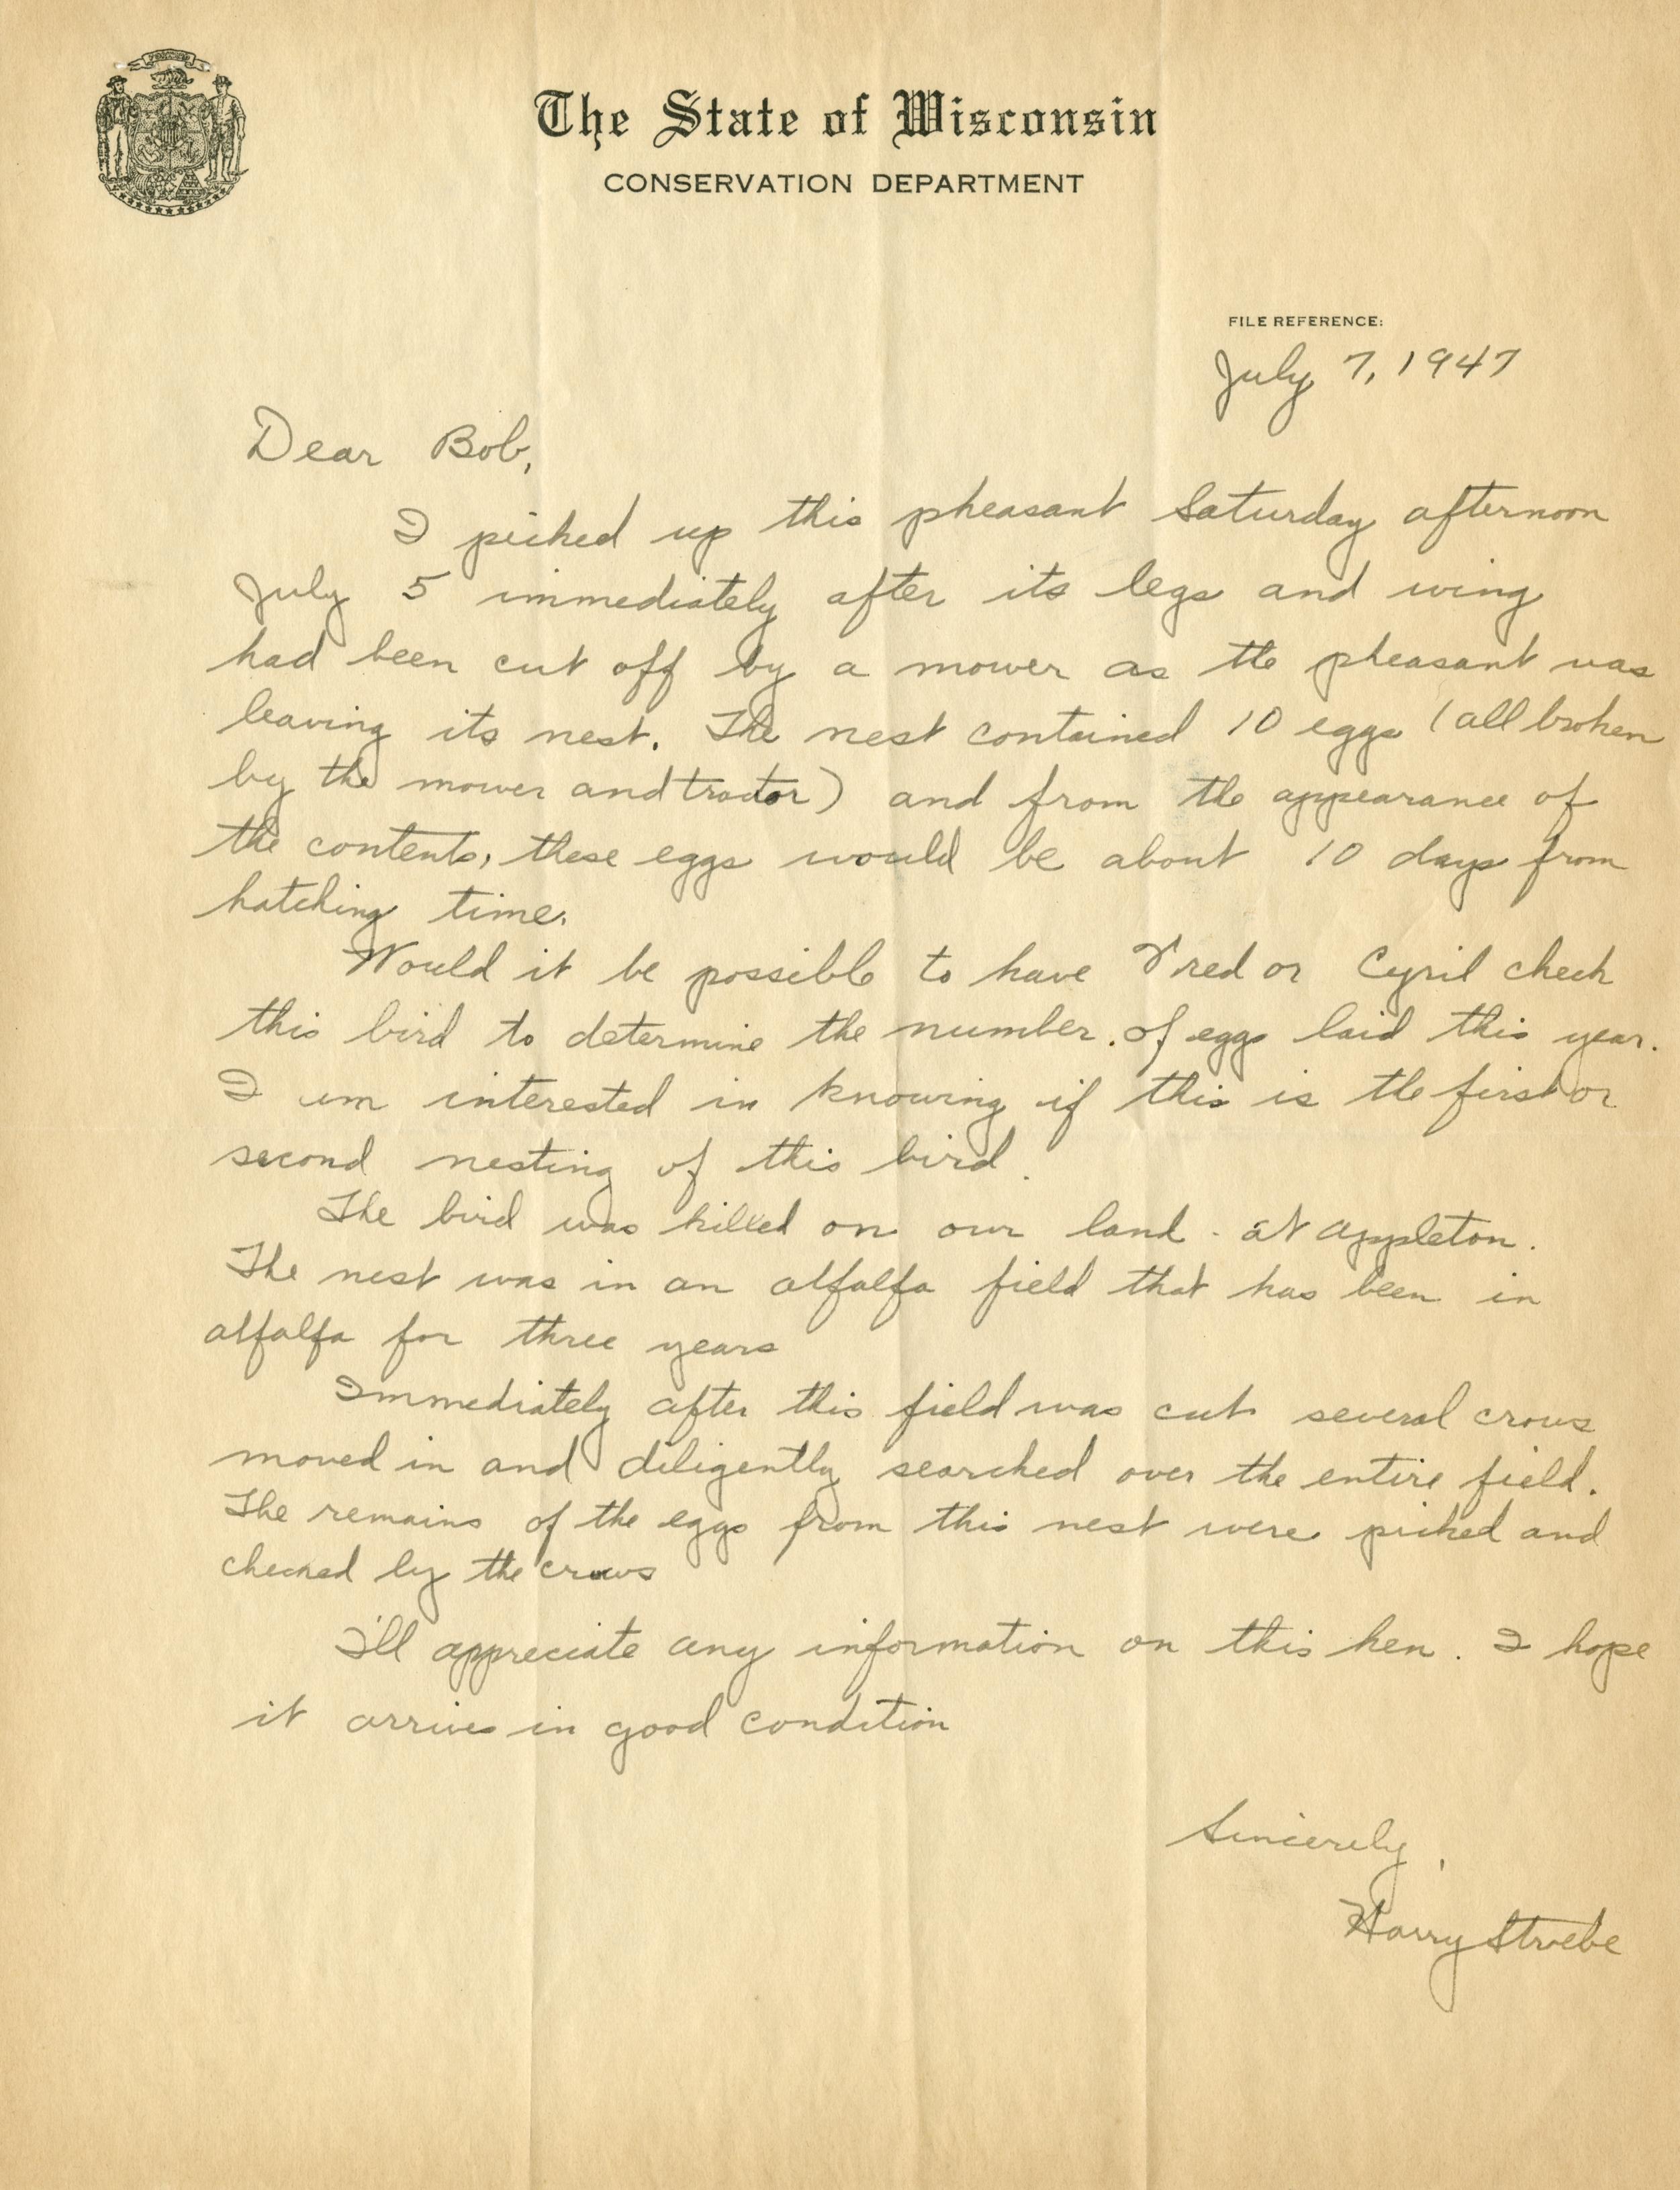 The State of Wisconsin
CONSERVATION DEPARTMENT
FILE REFERENCE:
July 7, 1947
Dear Bob,
I picked up this pheasant Saturday afternoon
July 5 immediately after its legs and wing
had been cut off by a mower as the pheasant was
leaving its nest. The nest contained 10 eggs (all broken
by the mower and tractor) and from the appearance of
the contents, these eggs would be about 10 days from
hatching time.
Would it be possible to have Fred or Cyril check
this bird to determine the number of eggs laid this year.
I am interested in knowing if this is the first or
second nesting of this bird.
The bird was killed on our land at Appleton.
The nest was in an alfalfa field that has been in
alfalfa for three years
Immediately after this field was cut several crows
moved in and diligently searched over the entire field.
The remains of the eggs from this nest were picked and
by the crows
I'll appreciate any information on this hen. I hope
it arrives in good condition
Sincerely,
Harry Stroebe